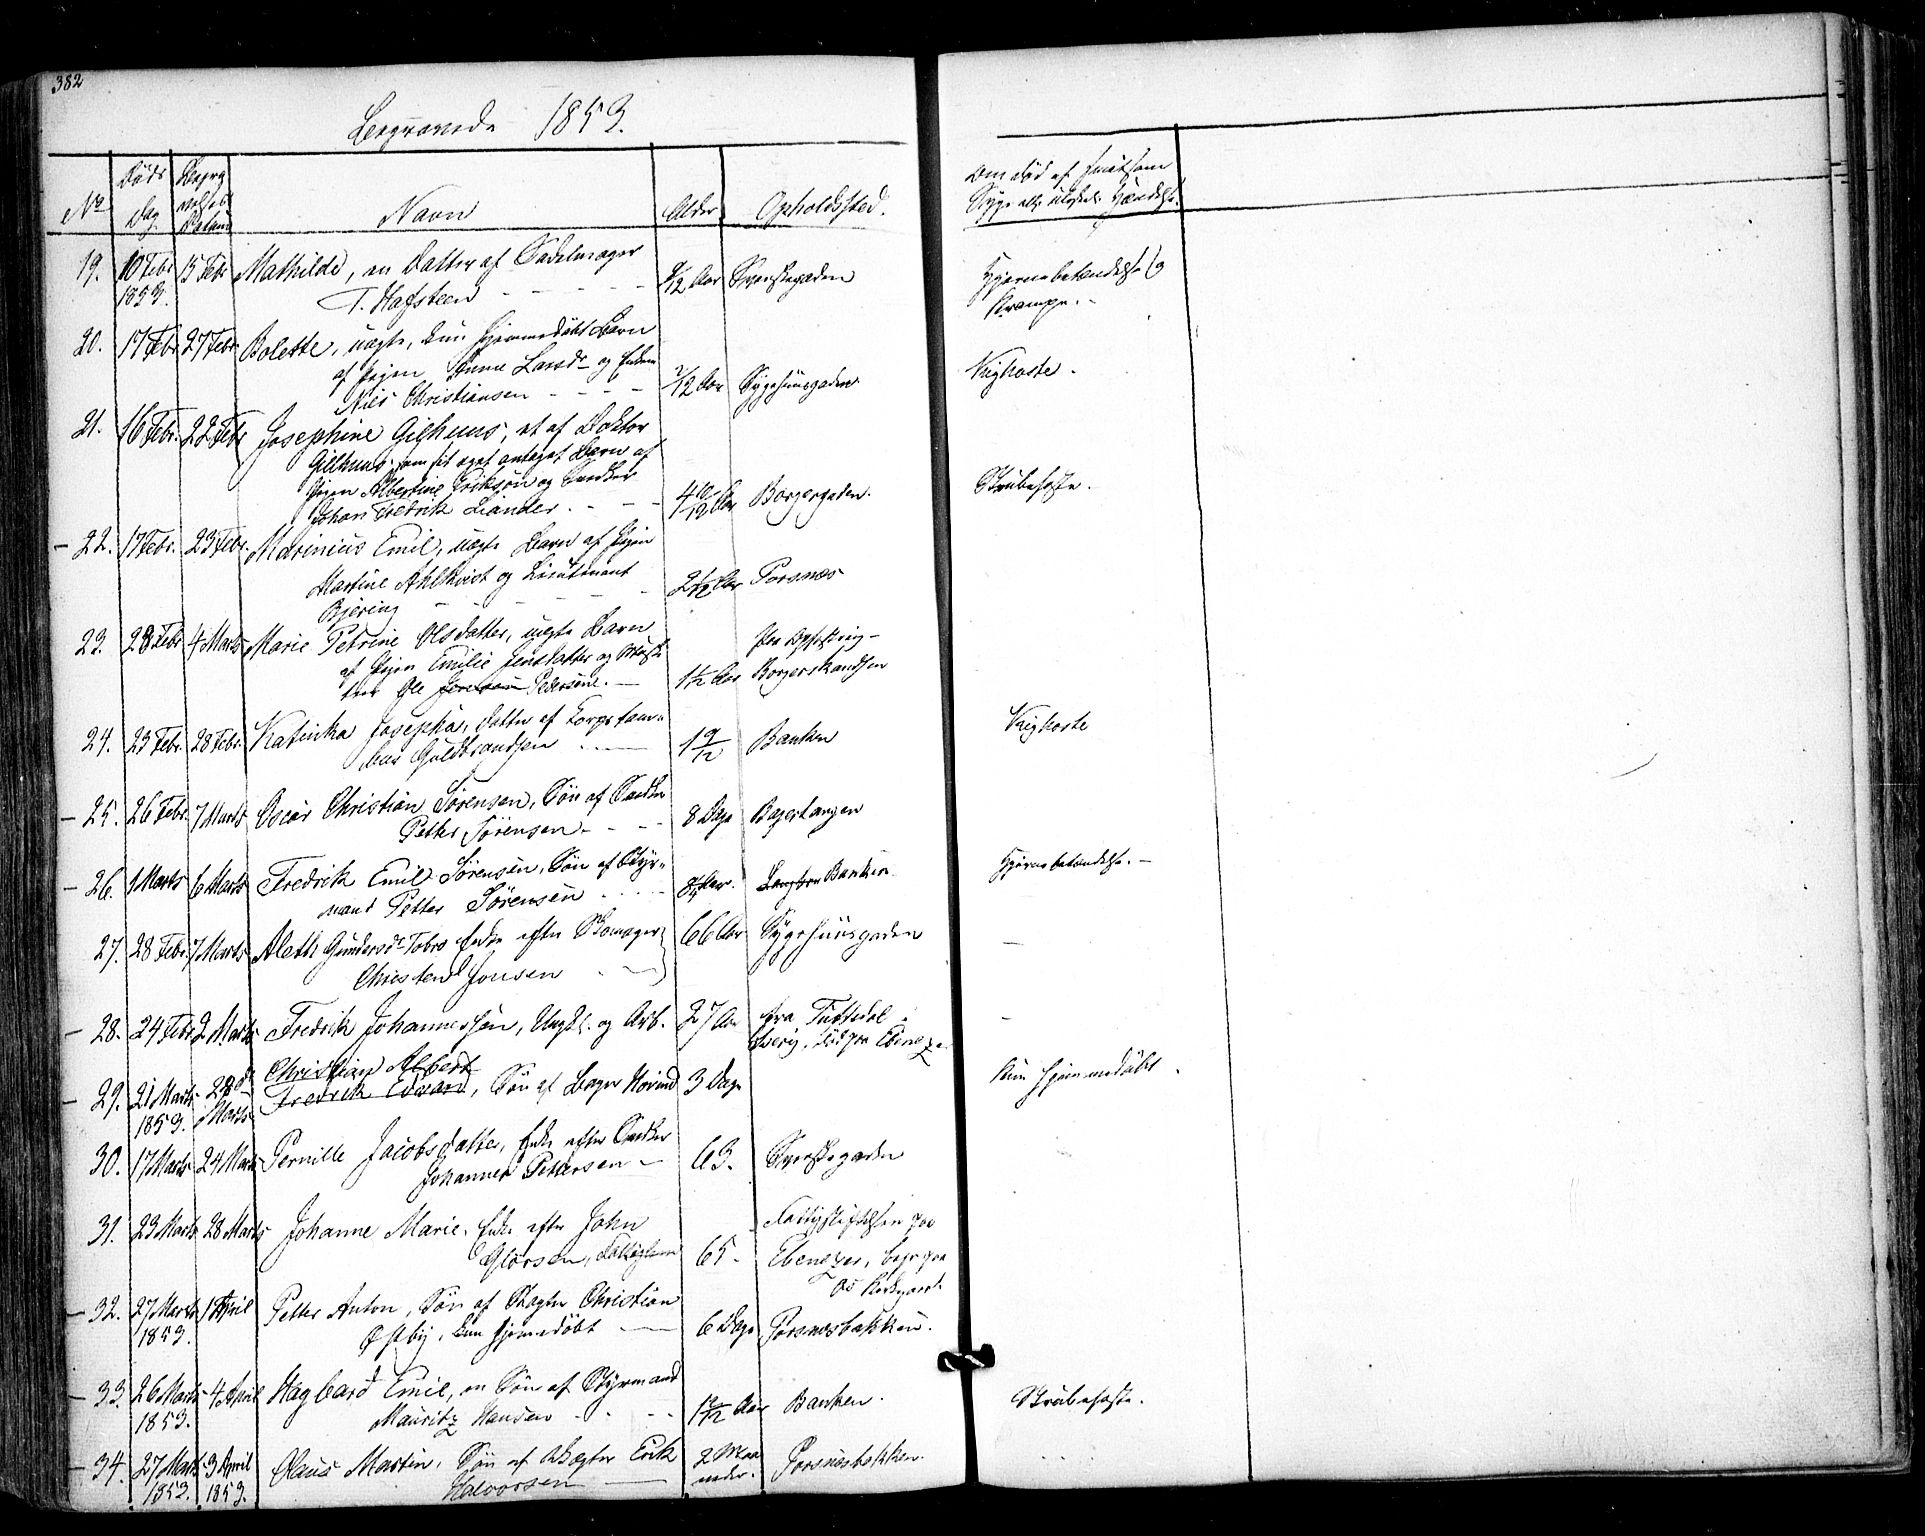 382
Begravede 1853.
No Døds Dag Begravelses Datum Navn Alder Opholdssted.
Om død af smitsom
Syge eller ulykkel. Hændelse.
19. 10 Febr 1853. 15 Febr Mathilde, en Datter af Sadelmager
T. Hafsteen /12 Aar Svenskegaden
Hjernebetændelse og
Krampe.
20. 17 Febr 27 Febr Bolette, uægte, kun hjemmedøbt Barn
af Pigen Anne Larsdr og Enkem
Nils Christiansen /12 Aar Sygehuusgaden
Kighoste.
21. 16 Febr. 22 Febr Josephine Gilhuus, et af Doktor
Gillhuus som sit eget antaget Barn af
Pigen Albertine Eriksen og Snedker
Johan Fredrik Liander. 4 10/12 Aar Borgergaden.
Strubehoste.
22. 17 Febr. 23 Febr. Marinius Emil, uægte Barn af Pigen
Martine Ahlkvist og Lieutenant
Bjering 2 1/2 Aar Porsnæs
23. 28 Febr 4 Marts Marie Petrine Olsdatter, uægte Barn
af Pigen Emilie Jensdatter og
Ole Pedersen. 1 1/2 Aar Borgerskandsen
24. 23 Febr. 28 Febr. Katinka Josepha, Datter af Korpstam-
bur Guldbrandsen 1 9/12 Banken
Kighoste
25. 26 Febr. 7 Marts Oscar Christian Sørensen, Søn af Snedker
Petter Sørensen 8 Dage Bagertangen
26. 1 Marts 6 Marts Fredrik Emil Sørensen, Søn af Styr-
mand Petter Sørensen 8/4 Aar. Banken
Hjernebetændelse.
27. 28 Febr. 7 Marts Aleth Gundersdr Tobrs Enke efter Skomager
Christen Jonsen 66 Aar Sygehuusgaden
28. 24 Febr 2 Marts Fredrik Johannessen, Ungk. og Arb. 27 Aar fra Tustedal i
Sverig, død paa Ebenezer
29. 21 Marts 1853. 28de Marts Christian Albert
Fredrik Edvard, Søn af Bager Hovind 3 Dage
Kun hjemmedøbt.
30. 17 Marts 24 Marts Pernille Jacobsdatter, Enke efter Snedker
Johannes Pettersen 63. Svenskegaden
31. 23 Marts 28 Marts Johanne Marie. Enke efter John
Glorsen, Fattiglem 65 Fattigstiftelsen paa
Ebenezer, begr. paa
Os Kirkegaard.
32. 27 Marts 1853. 1 April Petter Anton, Søn af Slagter Christian
Østby, kun hjemmedøbt 6 Dage Porsnæsbakken.
33. 26 Marts 1853. 4 April Hagbard Emil, en Søn af Styrmand
Mauritz Hansen 1 /12 Aar Banken.
Strubehoste.
34. 27 Marts 1853. 3 April 1853. Olaus Martin, Søn af Vægter Erik
Halvorsen 2 Maaneder. Porsnæsbakken.